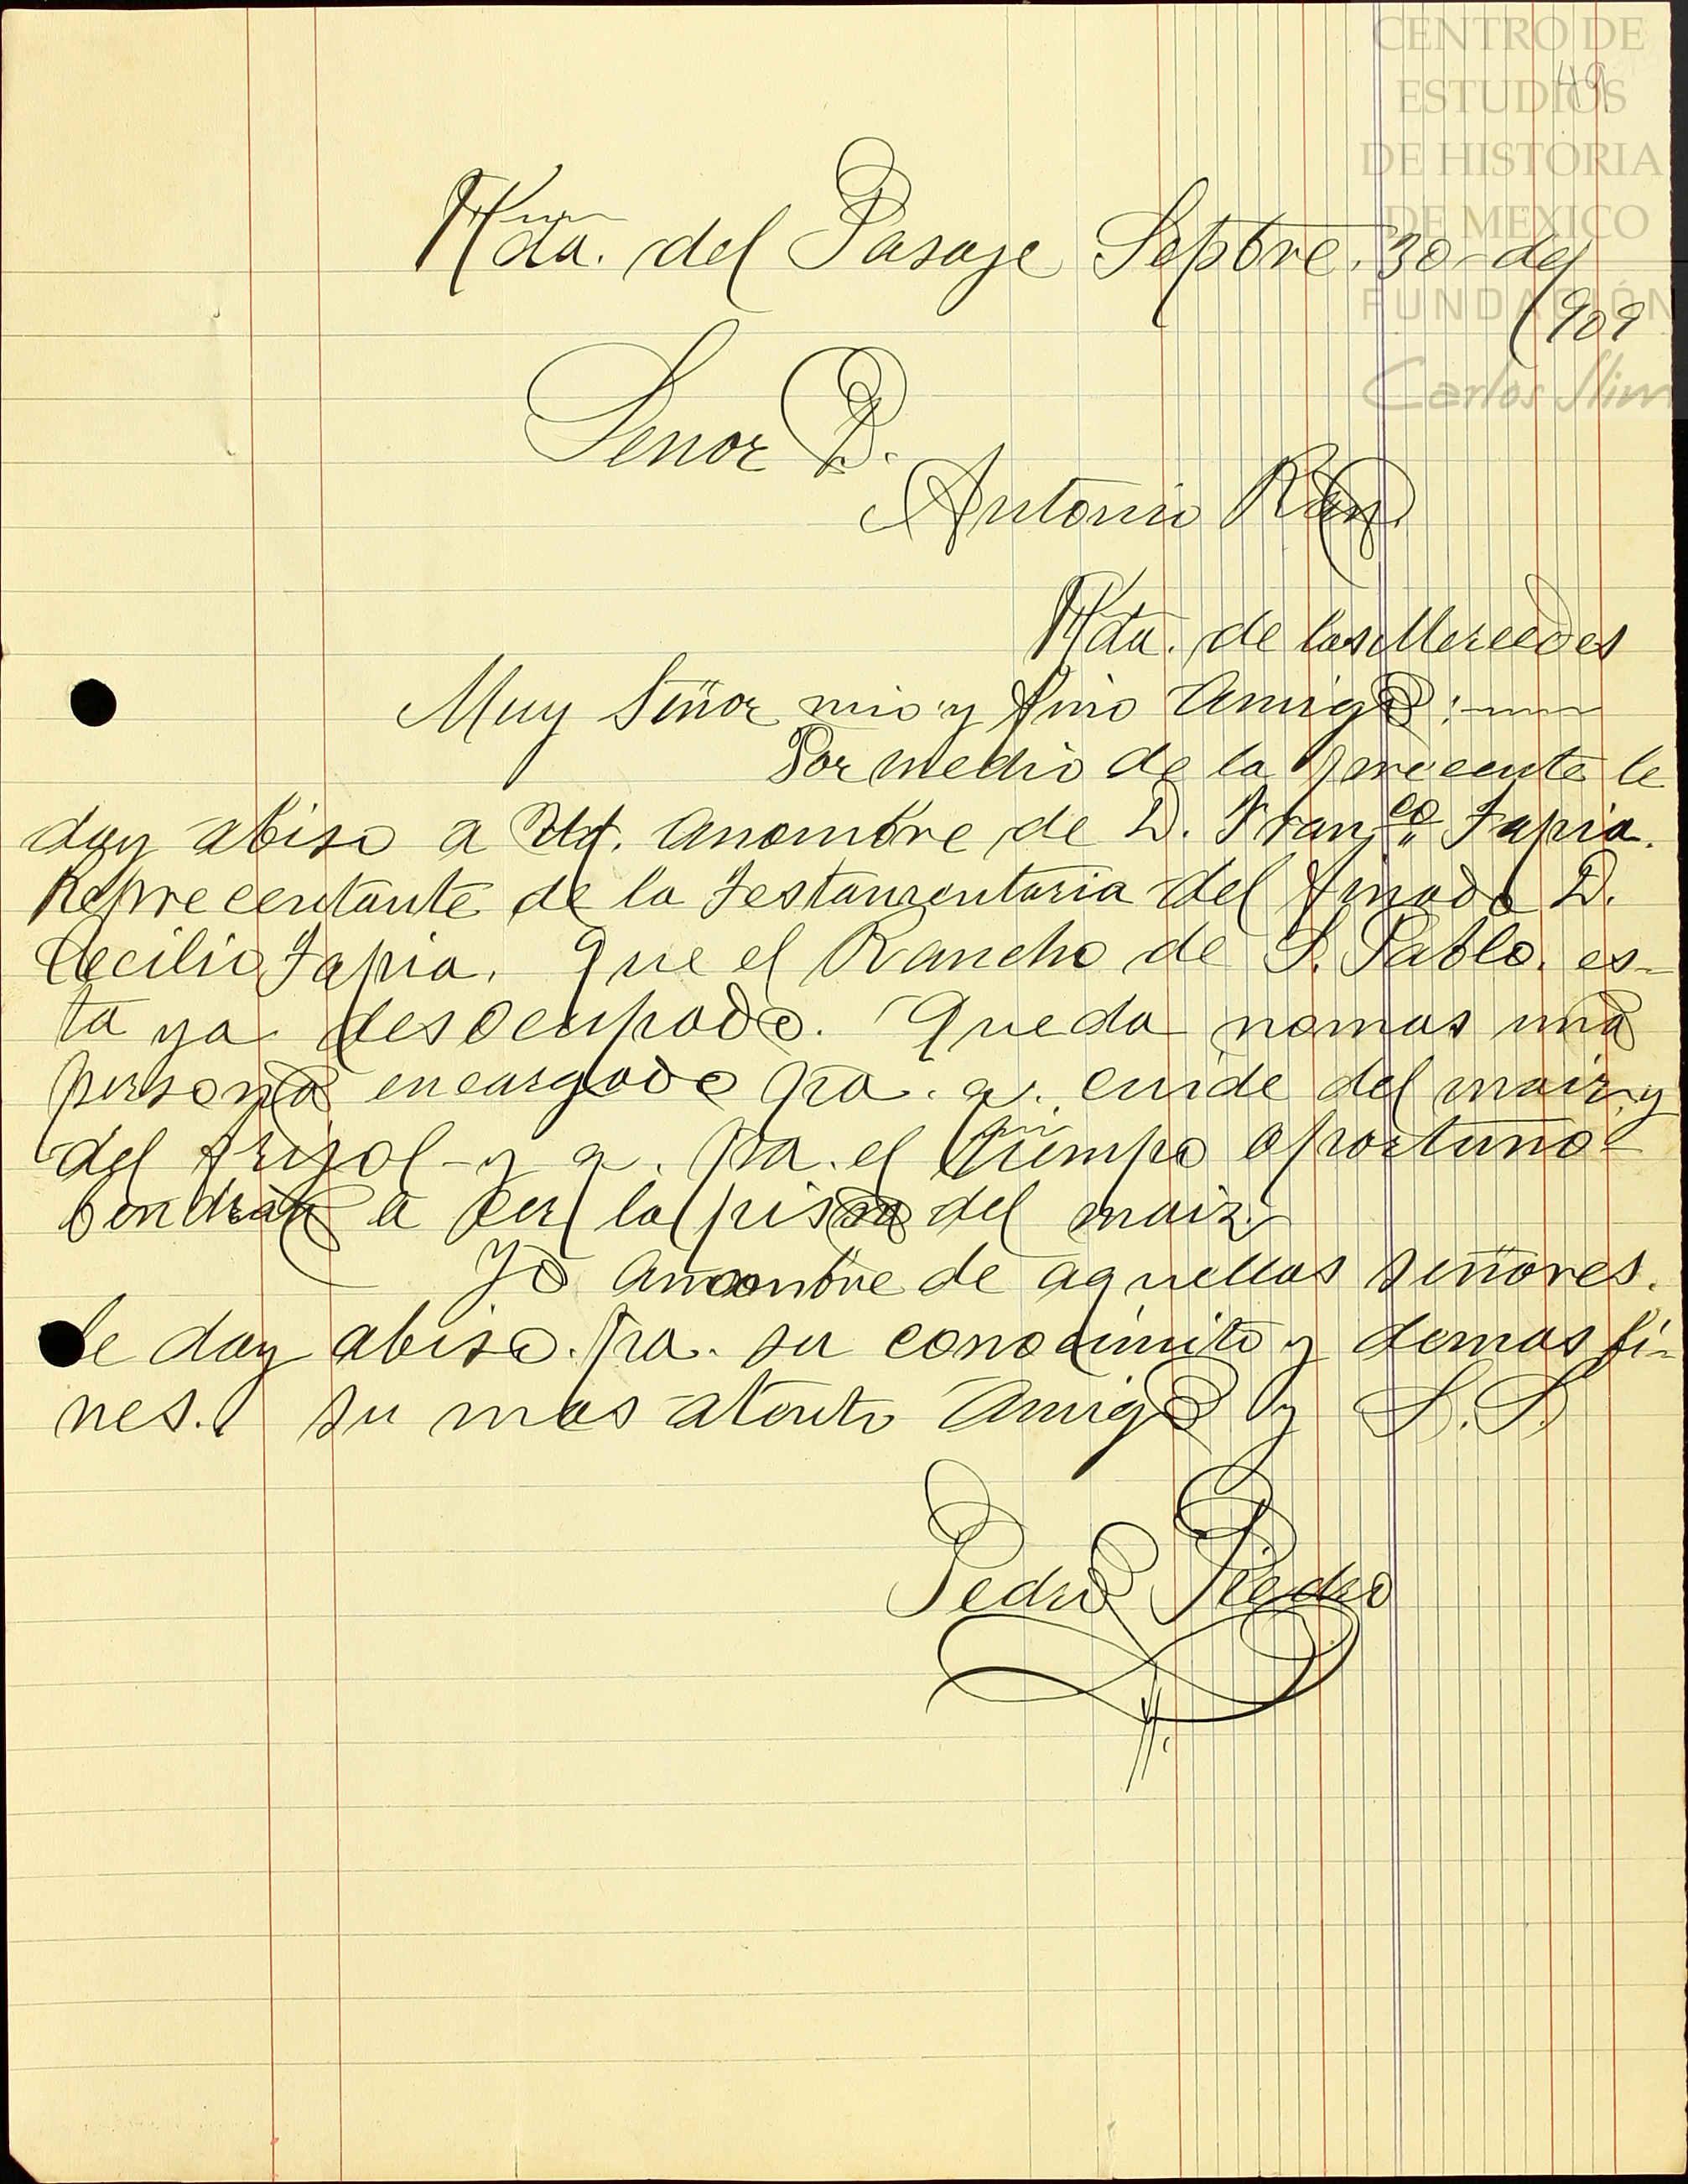 CENTRO DE
ESTUDIOS
DE HISTORIA
DE MEXICO
FUNDACIÓN
Carlos Slim
49
Hda. del Pasaje Septbre. 30 de
1909
Señor D.
Antonio
Hda. de las Mercedes
Muy Señor mio y fino Amigo:
Por medio de la precente le
doy abiso a Ud. anombre de D. Franco. Tapia.
Reprecentante de la Testamentaria del finado D.
Cecilio Tapia. Que el Rancho de S. Pablo. es-
ta ya desocupado. Queda nomas una
persona encargado pa. q. cuide del maiz y
del frijol y q. pa. el tiempo oportuno
bendran a la pisca del maiz.
Yo anombre de aquellos señores.
le doy abiso. pa. su conocimito y demas fi-
nes. su mas atento Amigo y S. S.
Pedro Piedro